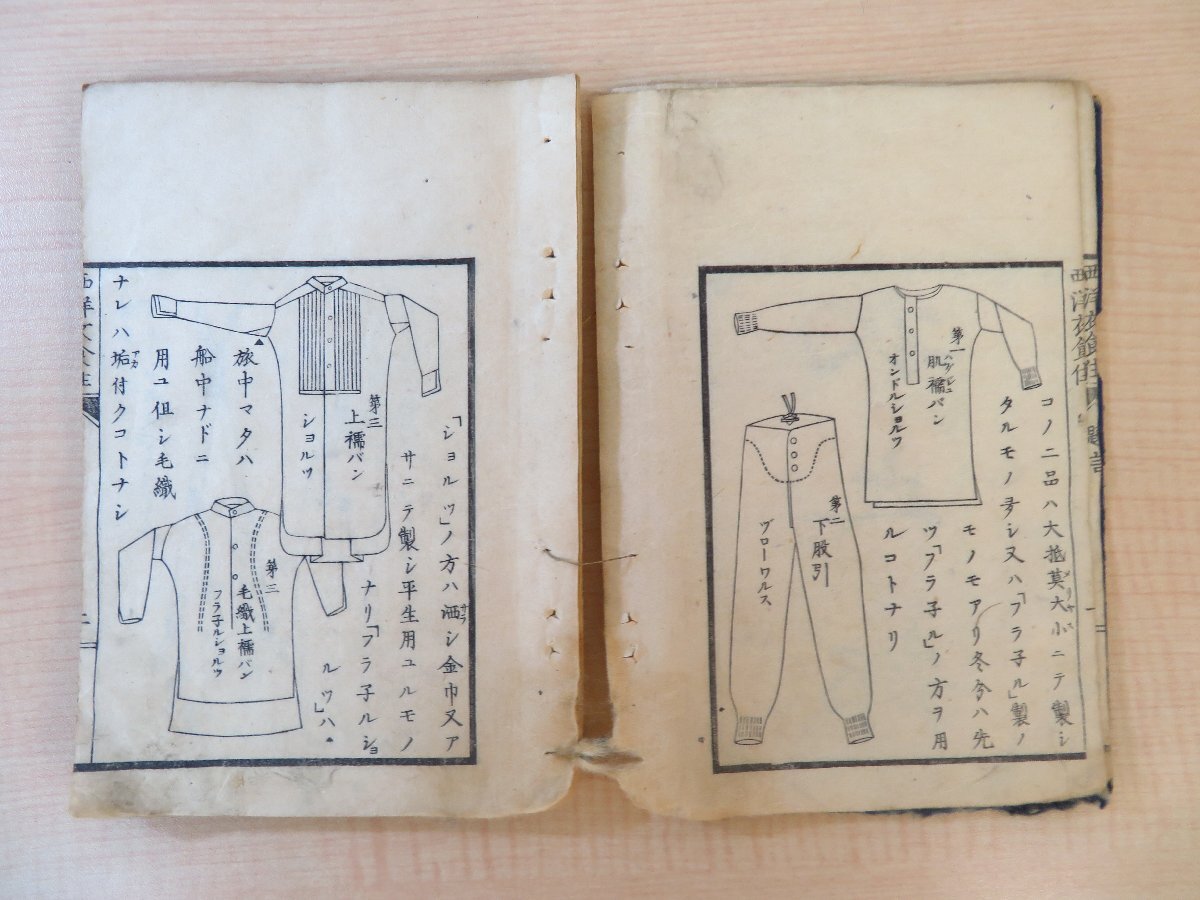 西洋衣食住
コノ二品ハ大抵莫大小ニテ製シ
メリヤス
タルモノ多シ又ハ「フラ子ル」製ノ
モノモアリ冬分ハ先
ツ「フラ子ル」ノ方ヲ用
ルコトナリ
第一
ハダジユ
肌襦バン
オンドルショルツ
第二
下股引
ヅローワルス
「ショルツ」ノ方ハ洒シ金巾又ア
サラ
サニテ製シ平生用ユルモノ
ナリ「フラ子ルショ
ルツ」ハ
第三
上襦バン
ショルツ
旅中マタハ
船中ナドニ
用ユ但シ毛織
ナレハ垢付クコトナシ
アカ
第三
毛織上襦バン
フラ子ルショルツ
西洋衣食住
二